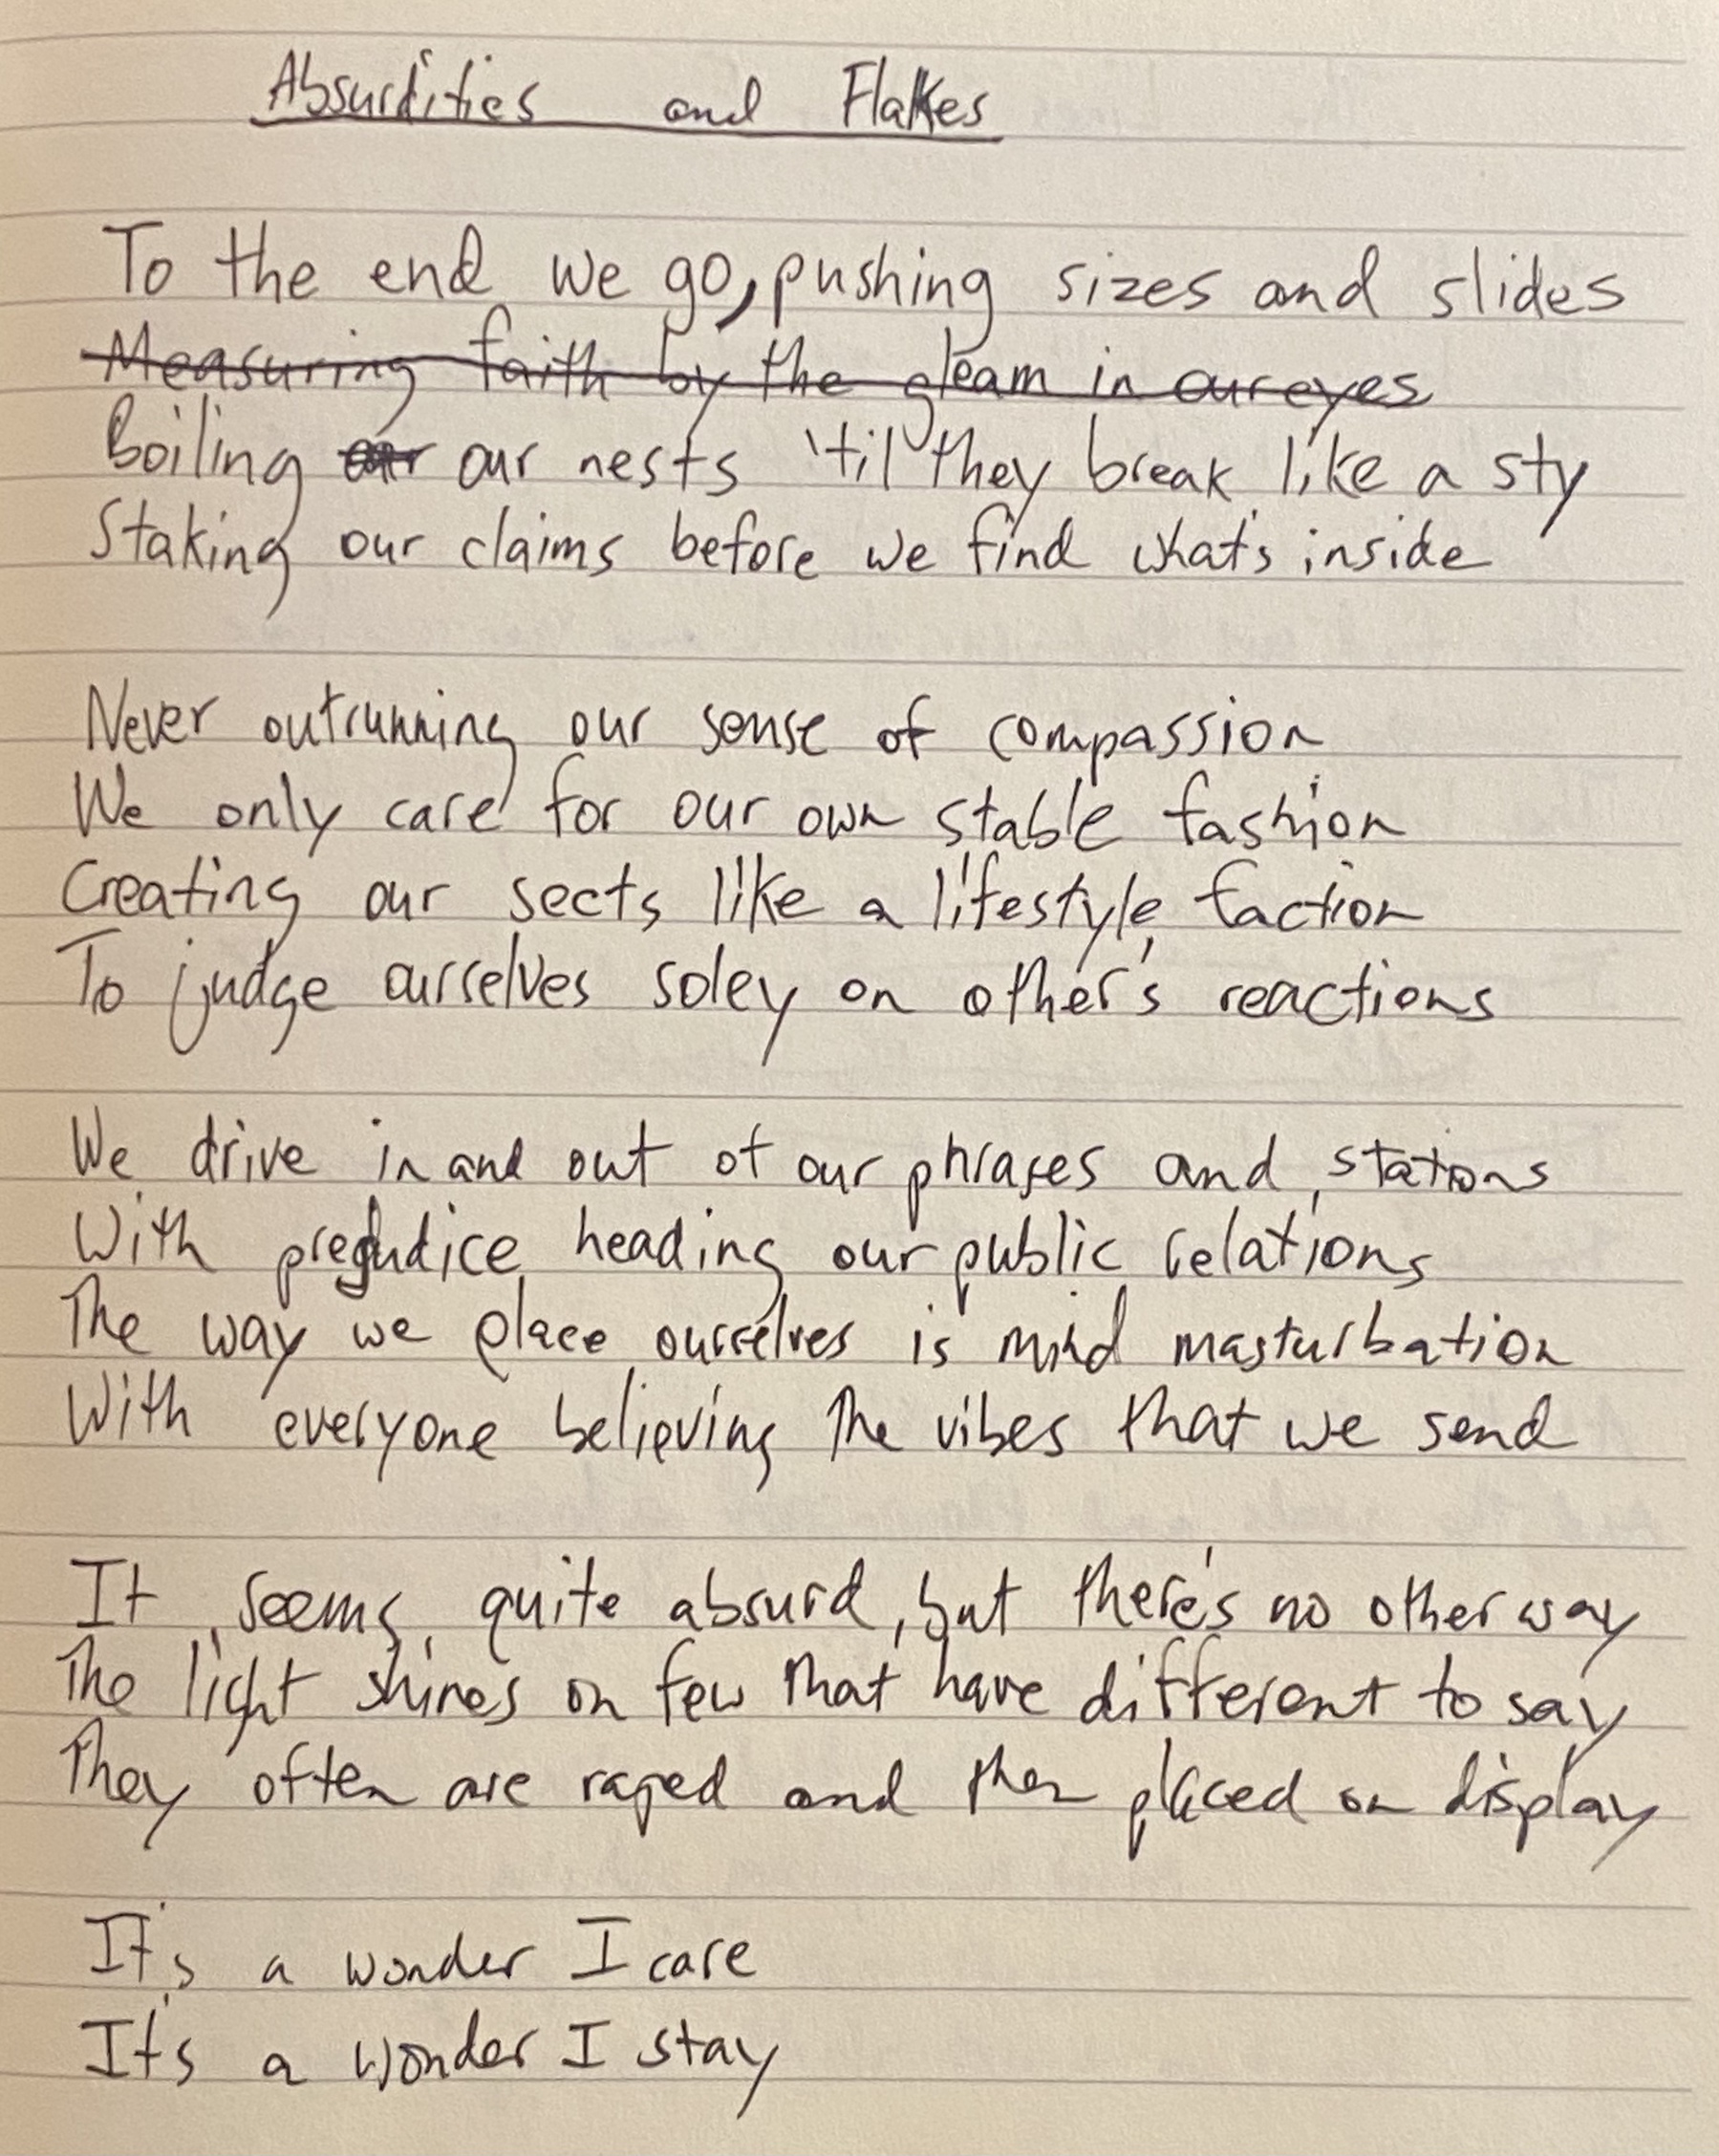 Absurdities and Flakes
To the end we go, pushing sizes and slides
Measuring faith by the gleam in our eyes
Boiling our our nests 'til they break like a sty
Staking our claims before we find what's inside
Never outrunning our sense of compassion
We only care for our own stable fashion
Creating our sects like a lifestyle faction
To judge ourselves soley on other's reactions
We drive in and out of our phrases and stations
With prejudice heading our public relations
The way we place ourselves is mind masturbation
With everyone believing the vibes that we send
It seems quite absurd, but there's no other way
The light shines on few that have different to say
They often are raped and then placed on display
It's a wonder I care
It's a wonder I stay